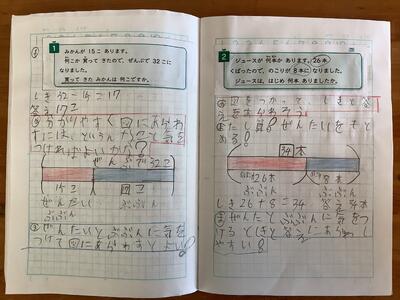 1
みかんが 15こ あります。
何こか 買って きたので、ぜんぶで 32こに
なりました。
買って きた みかんは 何こですか。
しき 32-15=17
答え 17こ
わかりやすく 図にあらわ
すには、という
つければよいか?
ぜんぶで 32こ
15こ
図こ
ぜんたい
ぶぶん
ぶぶん
ぜんたいとぶぶんに気を
つけて図にあらわすとよい!
2
ジュースが 何本か あります。26本
くばったので、のこりが 8本に なりました。
ジュースは、はじめ 何本 ありましたか。
図をつかって、しきと答
えを
たし算!ぜんたいをもと
める!
34本
26本
8本
ぶぶん
ぶぶん
しき 26+8=34 答え 34本
ぜんたいとぶぶんに気をつ
けるとしきと答えにあらわし
やすい!